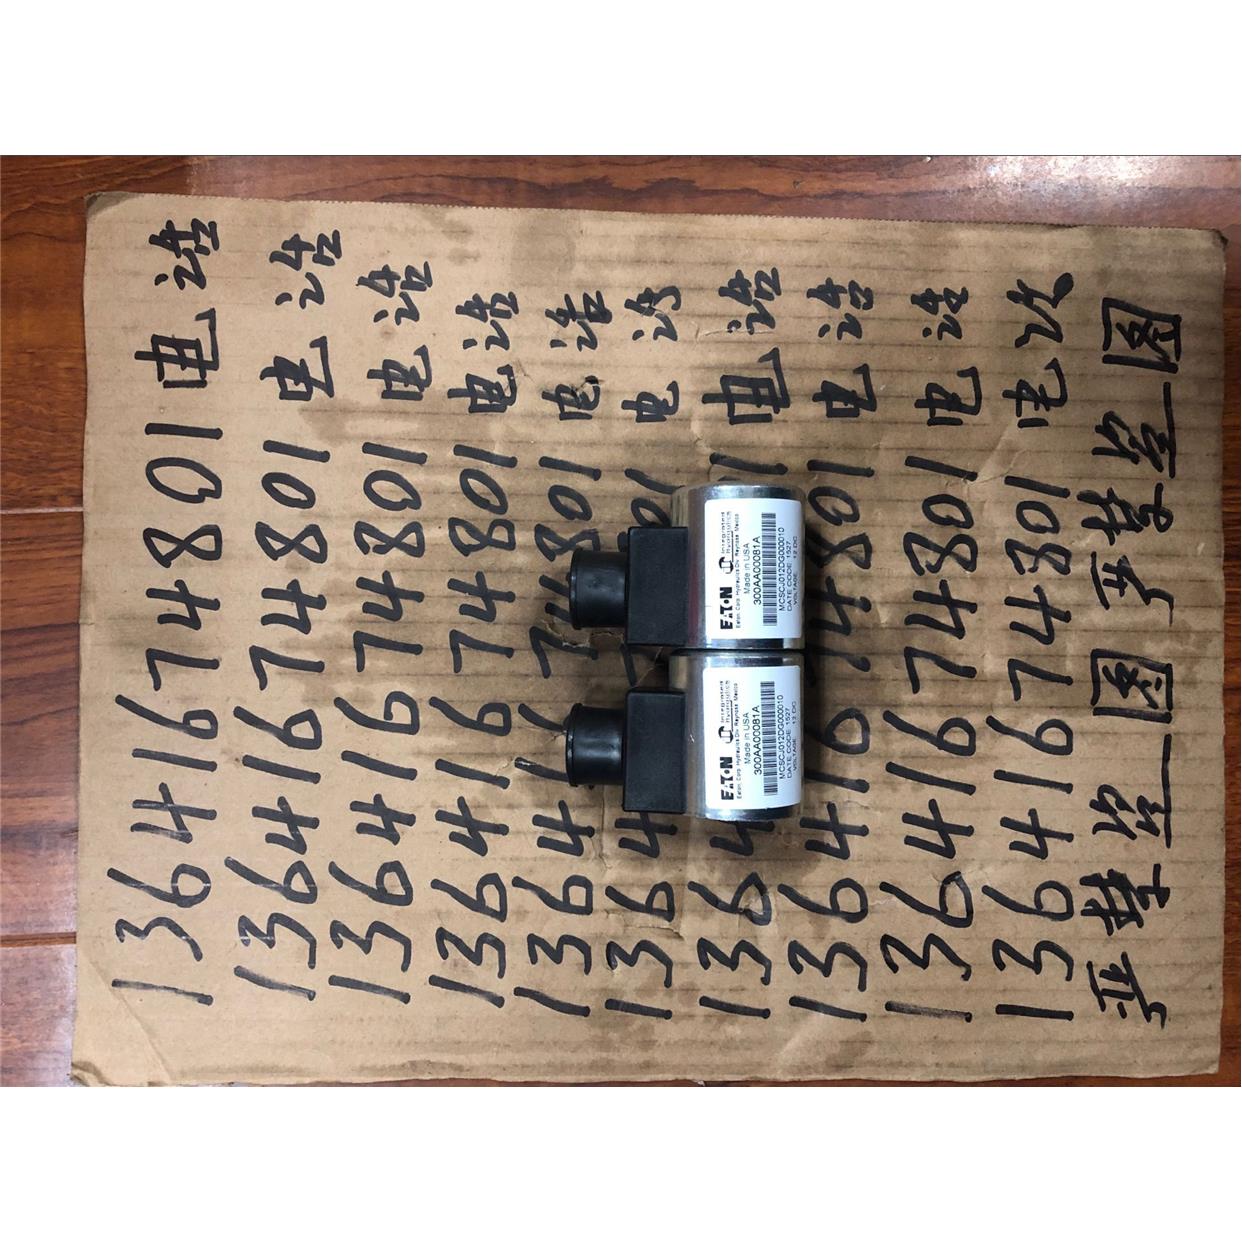 13641674801 电话
13641674801 电话
13641674801 电话
13641674801 电话
13641674801 电话
1364 01 电话
1364 1 电话
13641674801 电话
13641674801 电话
13641674801 电话
严禁盗图 严禁盗图
EATON Integrated Hydraulics
Eaton Corp. Hydraulics Div. Reynosa Mexico
Made in USA
300AA00081A
MCSCJ012DG000010
DATE CODE 1527
VOLTAGE 12 DC
EATON Integrated Hydraulics
Eaton Corp. Hydraulics Div. Reynosa Mexico
Made in USA
300AA00081A
MCSCJ012DG000010
DATE CODE 1527
VOLTAGE 12 DC